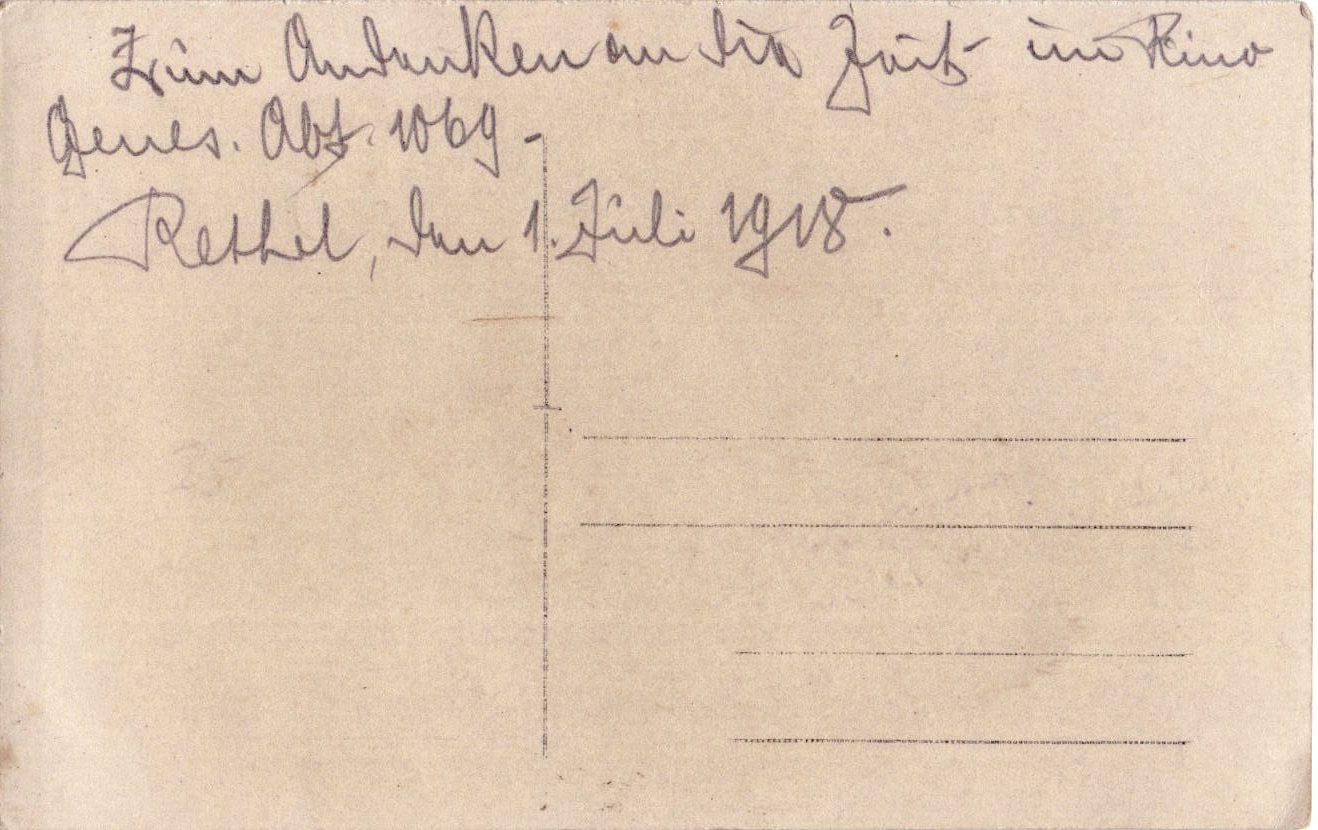 Zum Andenken an die Zeit im Kino
Genes. Abt. 1069 -
Rethel, den 1. Juli 1918.